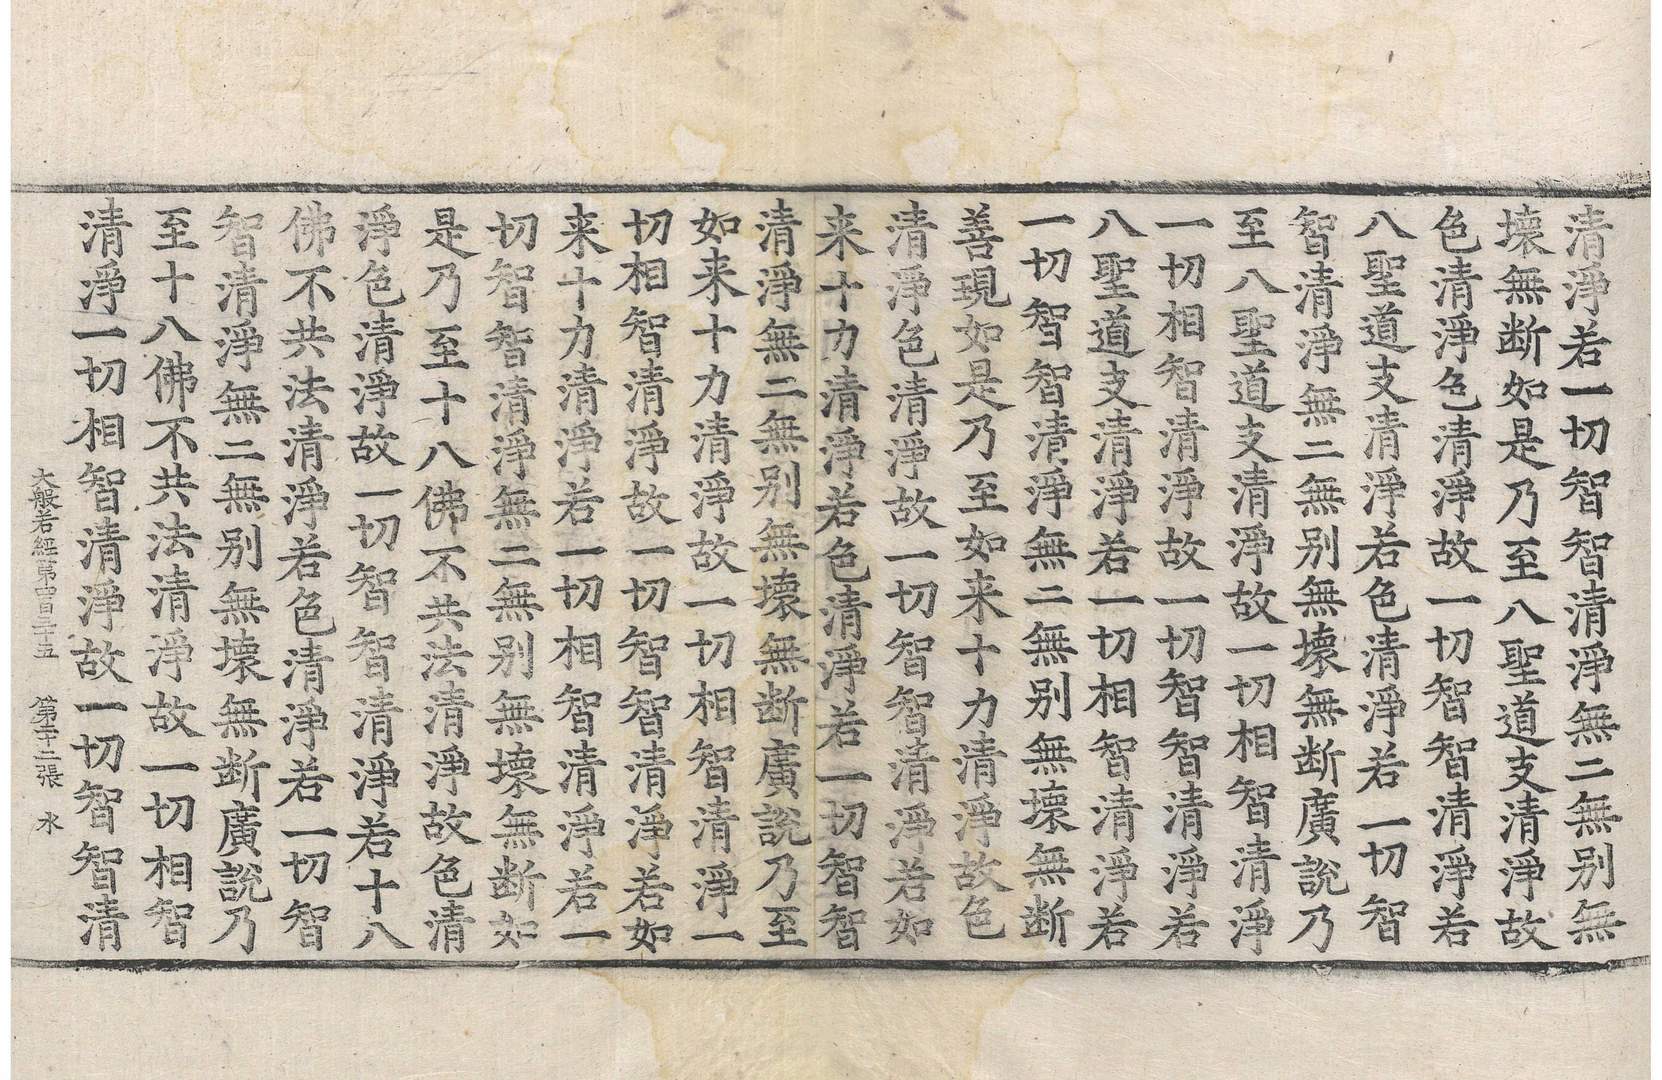 清淨若一切智智清淨無二無別無
壞無断如是乃至八聖道支清淨故
色清淨色清淨故一切智智清淨若
八聖道支清淨若色清淨若一切智
智清淨無二無別無壞無断廣說乃
至八聖道支清淨故一切相智清淨
一切相智清淨故一切智智清淨若
八聖道支清淨若一切相智清淨若
一切智智清淨無二無別無壞無断
善現如是乃至如来十力清淨故色
清淨色清淨故一切智智清淨若如
来十力清淨若色清淨若一切智智
清淨無二無別無壞無断廣說乃至
如来十力清淨故一切相智清淨一
切相智清淨故一切智智清淨若如
来十力清淨若一切相智清淨若一
切智智清淨無二無別無壞無断如
是乃至十八佛不共法清淨故色清
淨色清淨故一切智智清淨若十八
佛不共法清淨若色清淨若一切智
智清淨無二無別無壞無断廣說乃
至十八佛不共法清淨故一切相智
清淨一切相智清淨故一切智智清
大般若經第四百三十五 第二十二張 水